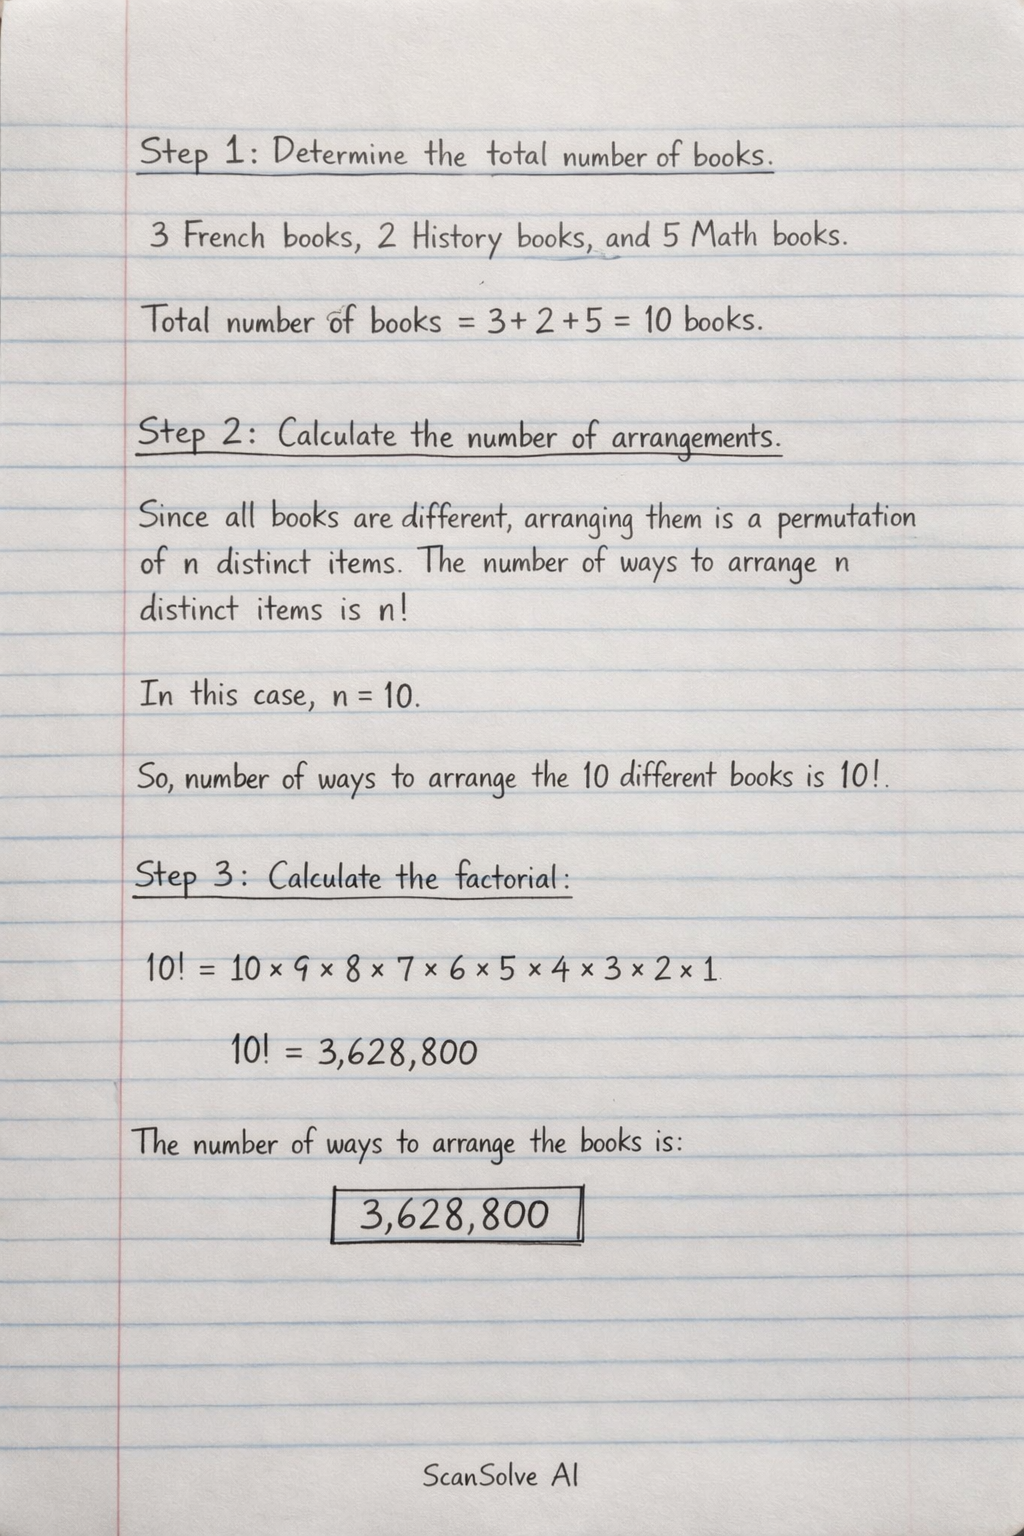 Step 1: Determine the total number of books.
3 French books, 2 History books, and 5 Math books.
Total number of books = 3+ 2 + 5 = 10 books.
Step 2: Calculate the number of arrangements.
Since all books are different, arranging them is a permutation
of n distinct items. The number of ways to arrange n
distinct items is n!
In this case, n = 10.
So, number of ways to arrange the 10 different books is 10!.
Step 3: Calculate the factorial:
10! = 10 × 9 × 8 × 7 × 6 × 5 × 4 × 3 × 2 × 1
10! = 3,628,800
The number of ways to arrange the books is:
3,628,800
ScanSolve AI